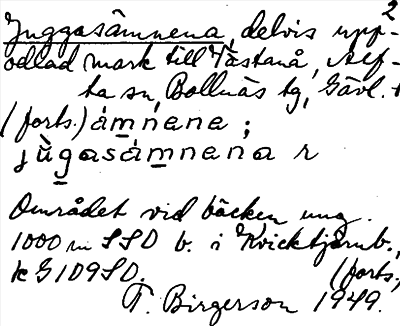 2
Juggasämnena, delvis upp-
odlad mark till Västanå, Alf-
ta sn, Bollnäs tg, Gävl. l
(forts.) ámnena ;
jùgasámnena r
Området vid bäcken ung.
1000 m SSO b. i Kvicktjärnb.,
k G109SO. (forts,
T. Birgerson 1949.